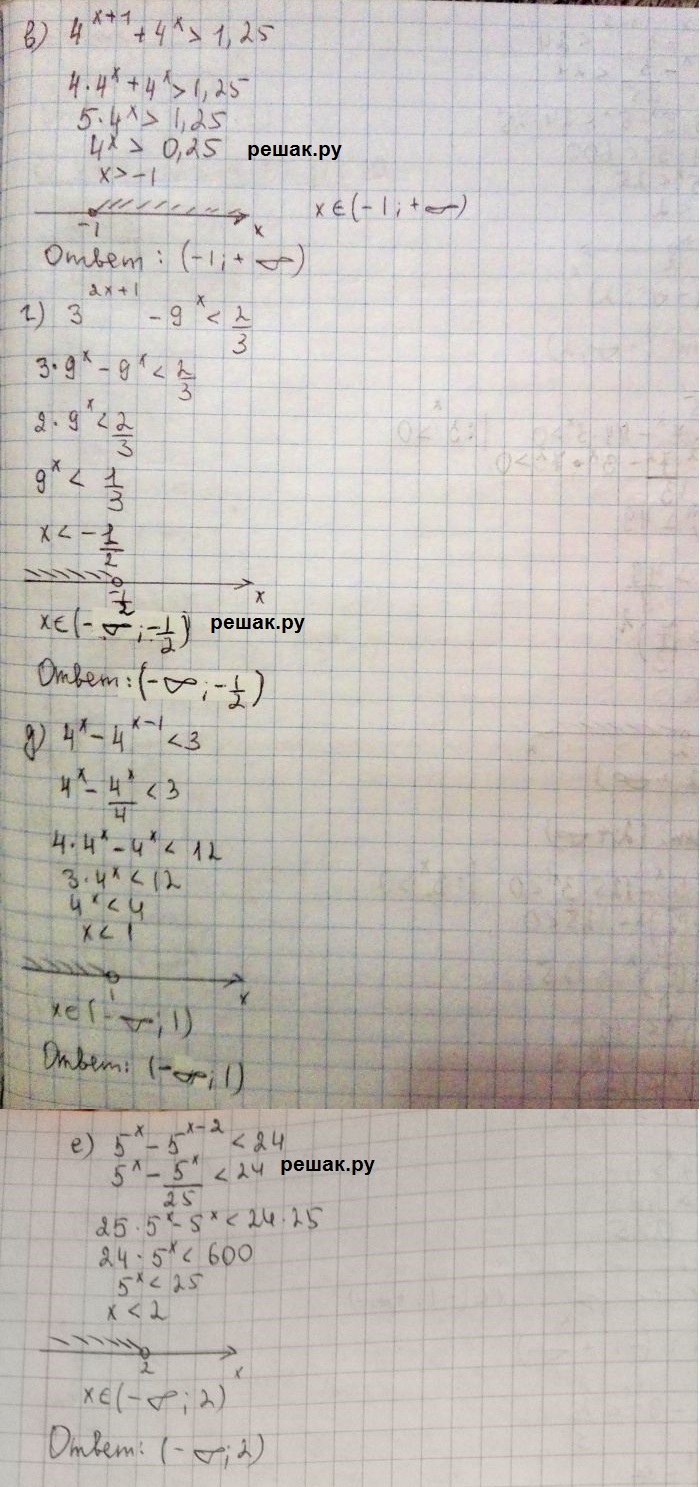 в) 4^(x+1) + 4^x > 1,25
4·4^x + 4^x > 1,25
5·4^x > 1,25
4^x > 0,25 решак.ру
x > -1
-1 x x ∈ (-1; +∞)
Ответ: (-1; +∞)
г) 3^(2x+1) - 9^x < 2/3
3·9^x - 9^x < 2/3
2·9^x < 2/3
9^x < 1/3
x < -1/2
-1/2 x
x ∈ (-∞; -1/2) решак.ру
Ответ: (-∞; -1/2)
д) 4^x - 4^(x-1) < 3
4^x - 4^x/4 < 3
4·4^x - 4^x < 12
3·4^x < 12
4^x < 4
x < 1
1 x
x ∈ (-∞; 1)
Ответ: (-∞; 1)
е) 5^x - 5^(x-2) < 24
5^x - 5^x/25 < 24 решак.ру
25·5^x - 5^x < 24·25
24·5^x < 600
5^x < 25
x < 2
2 x
x ∈ (-∞; 2)
Ответ: (-∞; 2)